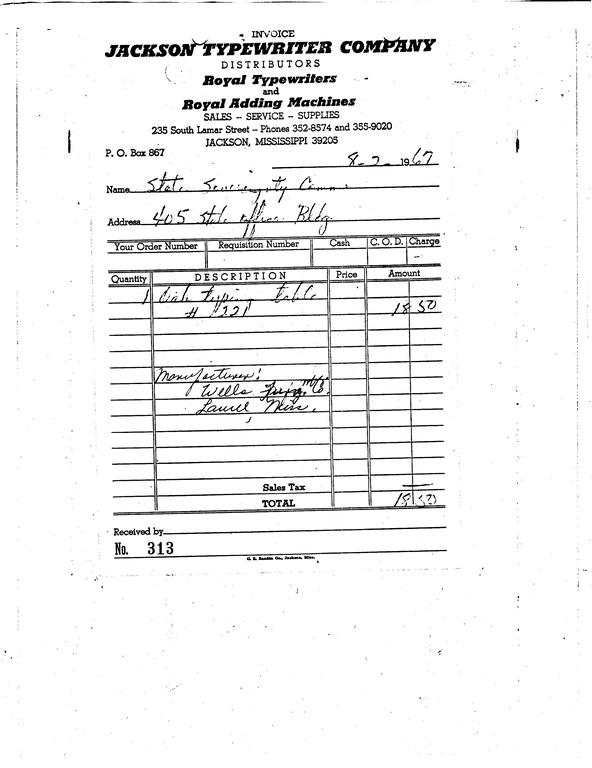 INVOICE
JACKSON TYPEWRITER COMPANY
DISTRIBUTORS
Royal Typewriters
and
Royal Adding Machines
SALES -- SERVICE -- SUPPLIES
235 South Lamar Street -- Phones 352-8574 and 355-9020
JACKSON, MISSISSIPPI 39205
P. O. Box 867
8-7-1967
Name State Sovereignty Comm.
Address 405 State Office Bldg
Your Order Number Requisition Number Cash C. O. D. Charge
Quantity DESCRIPTION Price Amount
1 Oak Typing Table
# 1221 18 50
Manufacturer:
Wells Furn. Mfg. Co.
Laurel Miss.
Sales Tax
TOTAL 18 50
Received by
No. 313